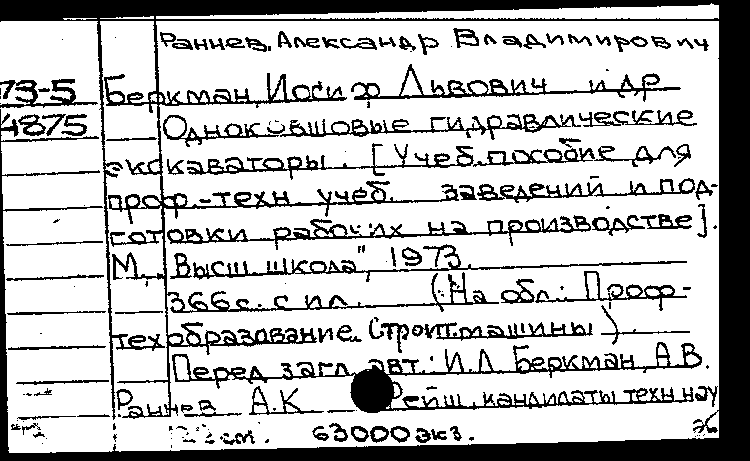 Раннев, Александр Владимирович
73-5 Беркман, Иосиф Львович и др
4875 Одноковшовые гидравлические
экскаваторы. [Учеб. пособие для
проф.-техн учеб. заведений и под-
готовки рабочих на производстве].
М., "Высш. школа", 1973.
366 с. с ил. (На обл.: Проф-
техобразование. Строит. машины).
Перед загл. авт.: И.Л. Беркман, А.В.
Раннев А.К Рейш, кандидаты техн нау
22 см. 63000 экз.